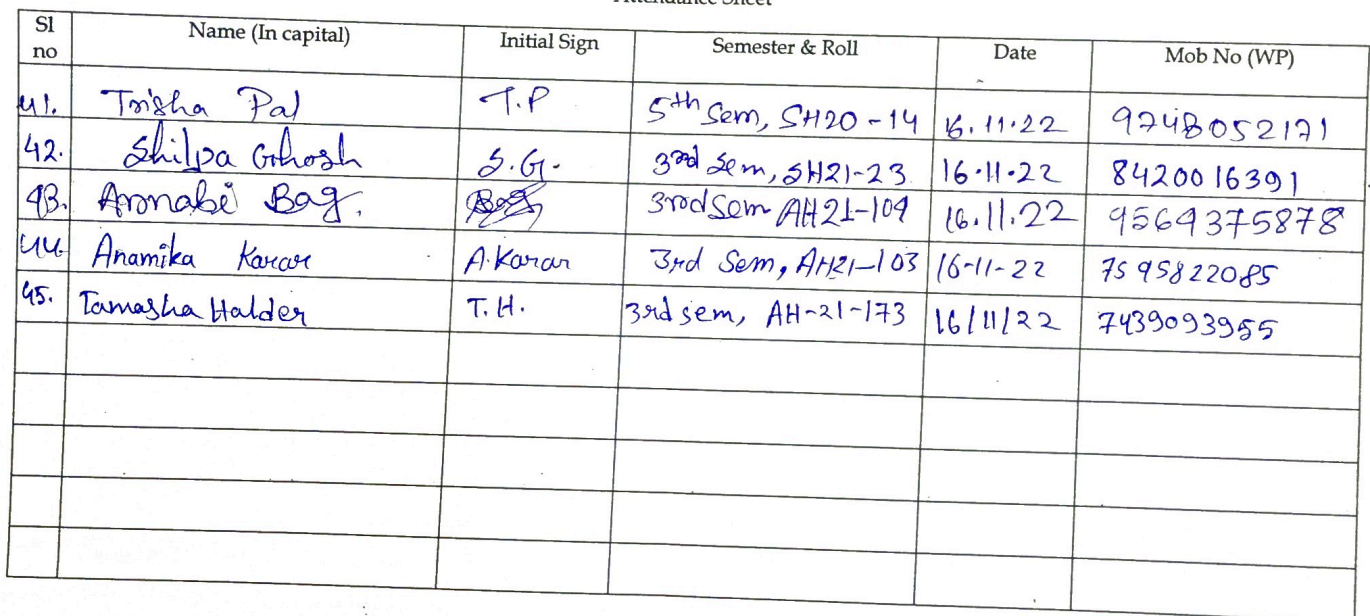 Attendance Sheet
Sl no Name (In capital) Initial Sign Semester & Roll Date Mob No (WP)
41. Trisha Pal T.P 5th Sem, SH20-14 16.11.22 9748052171
42. Shilpa Ghosh S.G. 3rd Sem, SH21-23 16.11.22 8420016391
43. Arnabi Bag. Bag 3rd Sem AH21-109 16.11.22 9564375878
44 Anamika Karar A.Karar 3rd Sem, AH21-103 16-11-22 7595822085
45. Tamasha Halder T.H. 3rd sem, AH-21-173 16/11/22 7439093955